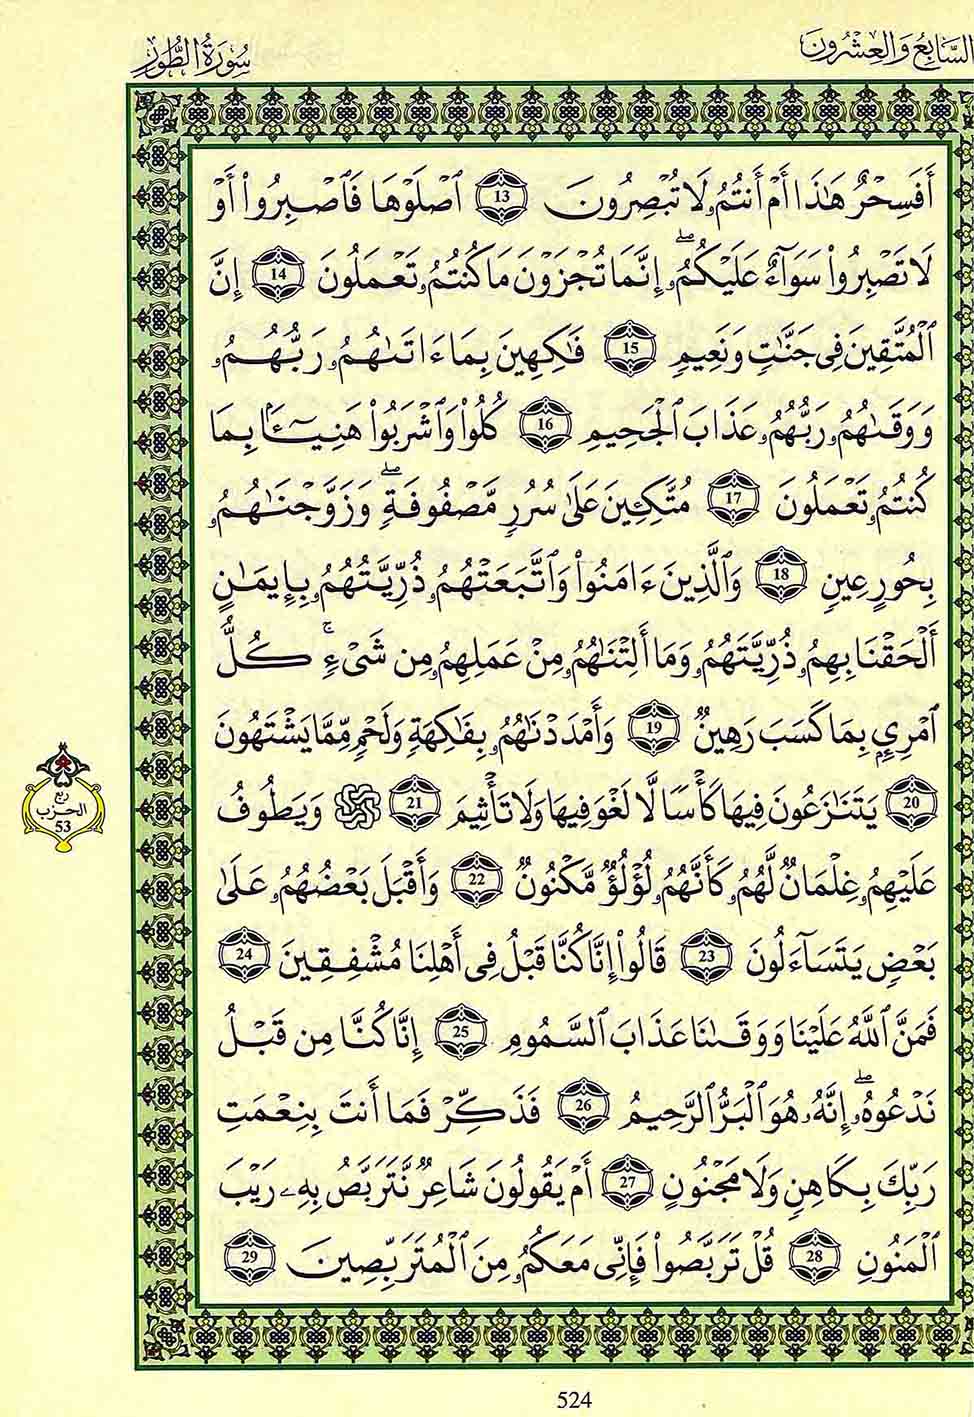 السَّابِعُ وَالعِشْرُونَ
سُورَةُ الطُّورِ
أَفَسِحْرٌ هَٰذَا أَمْ أَنتُمُۥ لَا تُبْصِرُونَ 13 ٱصْلَوْهَا فَٱصْبِرُوٓا۟ أَوْ
لَا تَصْبِرُوا۟ سَوَآءٌ عَلَيْكُمُۥٓۖ إِنَّمَا تُجْزَوْنَ مَا كُنتُمُۥ تَعْمَلُونَ 14 إِنَّ
ٱلْمُتَّقِينَ فِى جَنَّٰتٍ وَنَعِيمٍ 15 فَٰكِهِينَ بِمَا ءَاتَىٰهُمُۥ رَبُّهُمُۥ
وَوَقَىٰهُمُۥ رَبُّهُمُۥ عَذَابَ ٱلْجَحِيمِ 16 كُلُوا۟ وَٱشْرَبُوا۟ هَنِيٓـًٔا بِمَا
كُنتُمُۥ تَعْمَلُونَ 17 مُتَّكِـِٔينَ عَلَىٰ سُرُرٍ مَّصْفُوفَةٍۖ وَزَوَّجْنَٰهُمُۥ
بِحُورٍ عِينٍ 18 وَٱلَّذِينَ ءَامَنُوا۟ وَٱتَّبَعَتْهُمُۥ ذُرِّيَّتُهُمُۥ بِإِيمَٰنٍ
أَلْحَقْنَا بِهِمُۥ ذُرِّيَّتَهُمُۥ وَمَا أَلِتْنَٰهُمُۥ مِنْ عَمَلِهِمُۥ مِن شَىْءٍۚ كُلُّ
ٱمْرِىٍٕ بِمَا كَسَبَ رَهِينٌ 19 وَأَمْدَدْنَٰهُمُۥ بِفَٰكِهَةٍ وَلَحْمٍ مِّمَّا يَشْتَهُونَ
20 يَتَنَٰزَعُونَ فِيهَا كَأْسًا لَّا لَغْوَ فِيهَا وَلَا تَأْثِيمَ 21 وَيَطُوفُ
ربع
الحزب
53
عَلَيْهِمُۥ غِلْمَانٌ لَّهُمُۥ كَأَنَّهُمُۥ لُؤْلُؤٌ مَّكْنُونٌ 22 وَأَقْبَلَ بَعْضُهُمُۥ عَلَىٰ
بَعْضٍ يَتَسَآءَلُونَ 23 قَالُوٓا۟ إِنَّا كُنَّا قَبْلُ فِى أَهْلِنَا مُشْفِقِينَ 24
فَمَنَّ ٱللَّهُ عَلَيْنَا وَوَقَىٰنَا عَذَابَ ٱلسَّمُومِ 25 إِنَّا كُنَّا مِن قَبْلُ
نَدْعُوهُۥۖ إِنَّهُۥ هُوَ ٱلْبَرُّ ٱلرَّحِيمُ 26 فَذَكِّرْ فَمَا أَنتَ بِنِعْمَتِ
رَبِّكَ بِكَاهِنٍ وَلَا مَجْنُونٍ 27 أَمْ يَقُولُونَ شَاعِرٌ نَّتَرَبَّصُ بِهِۦ رَيْبَ
ٱلْمَنُونِ 28 قُلْ تَرَبَّصُوا۟ فَإِنِّى مَعَكُمُۥ مِنَ ٱلْمُتَرَبِّصِينَ 29
524